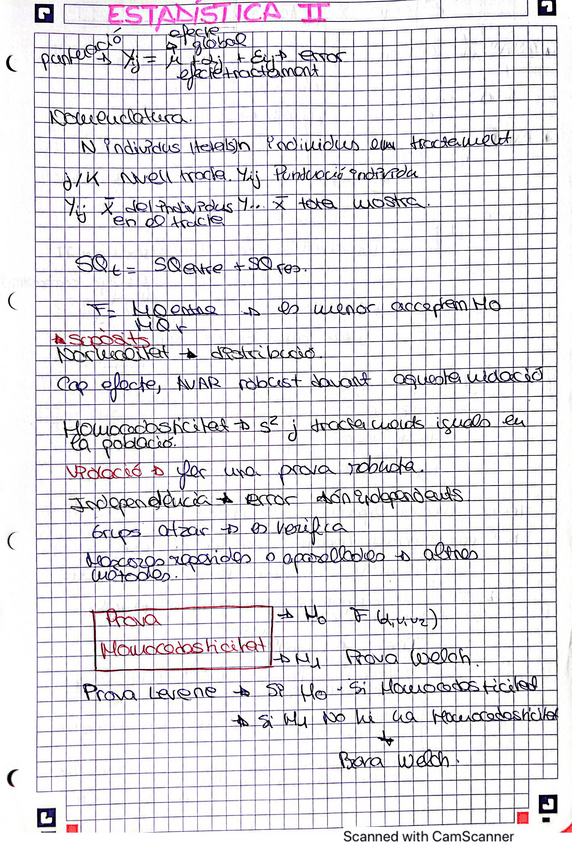 ESTADÍSTICA II
efecte
puntuació → Yij = μ + αj + εij → error
global
efecte tractament
Nomenclatura.
N individus totals/n individus en tractament
j/K Nivell tracte. Yij Puntuació individu
Yij x̄ del individus Y.. x̄ tota mostra.
en el tracte
SQt = SQentre + SQres.
F = MQentre → es menor acceptem H0
MQr
Supòsits
Normalitat → distribució.
Cap efecte, ANVAR robust davant aquesta violació
Homocedasticitat → s² j tractaments iguals en
la població.
Violació → fer una prova robusta.
Independència → error són independents
Grups atzar → es verifica
Mesures repetides o aparellades → altres
mètodes.
Prova
Homocedasticitat
→ H0 F(α,v1,v2)
→ H1 Prova Welch.
Prova Levene → Si H0 - Si Homocedasticitat
→ Si H1 No hi ha Homocedasticitat
Welch.
Scanned with CamScanner